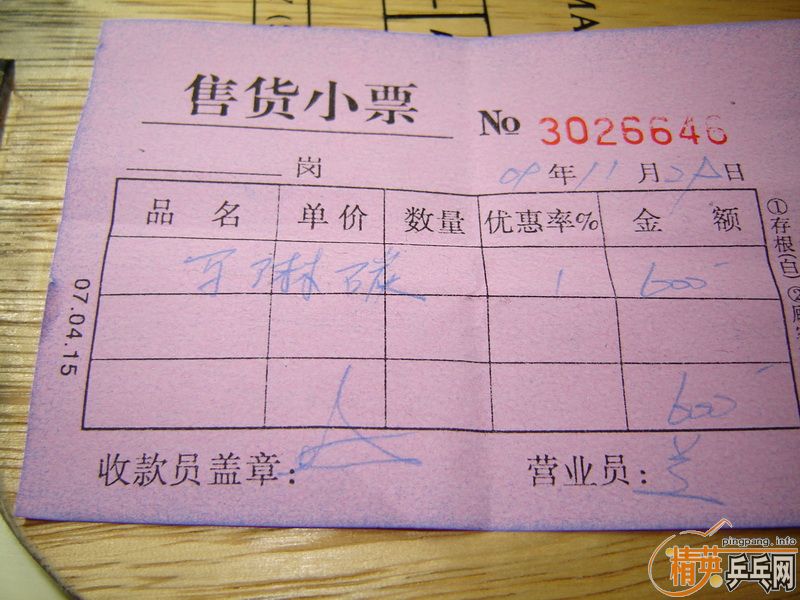 售货小票 № 3026646
岗 09年11月 日
品名 单价 数量 优惠率% 金额
马琳碳 1 600
600
收款员盖章: 营业员: 兰
07.04.15
①存根(白)②顾
pingpang.info
精英乒乓网